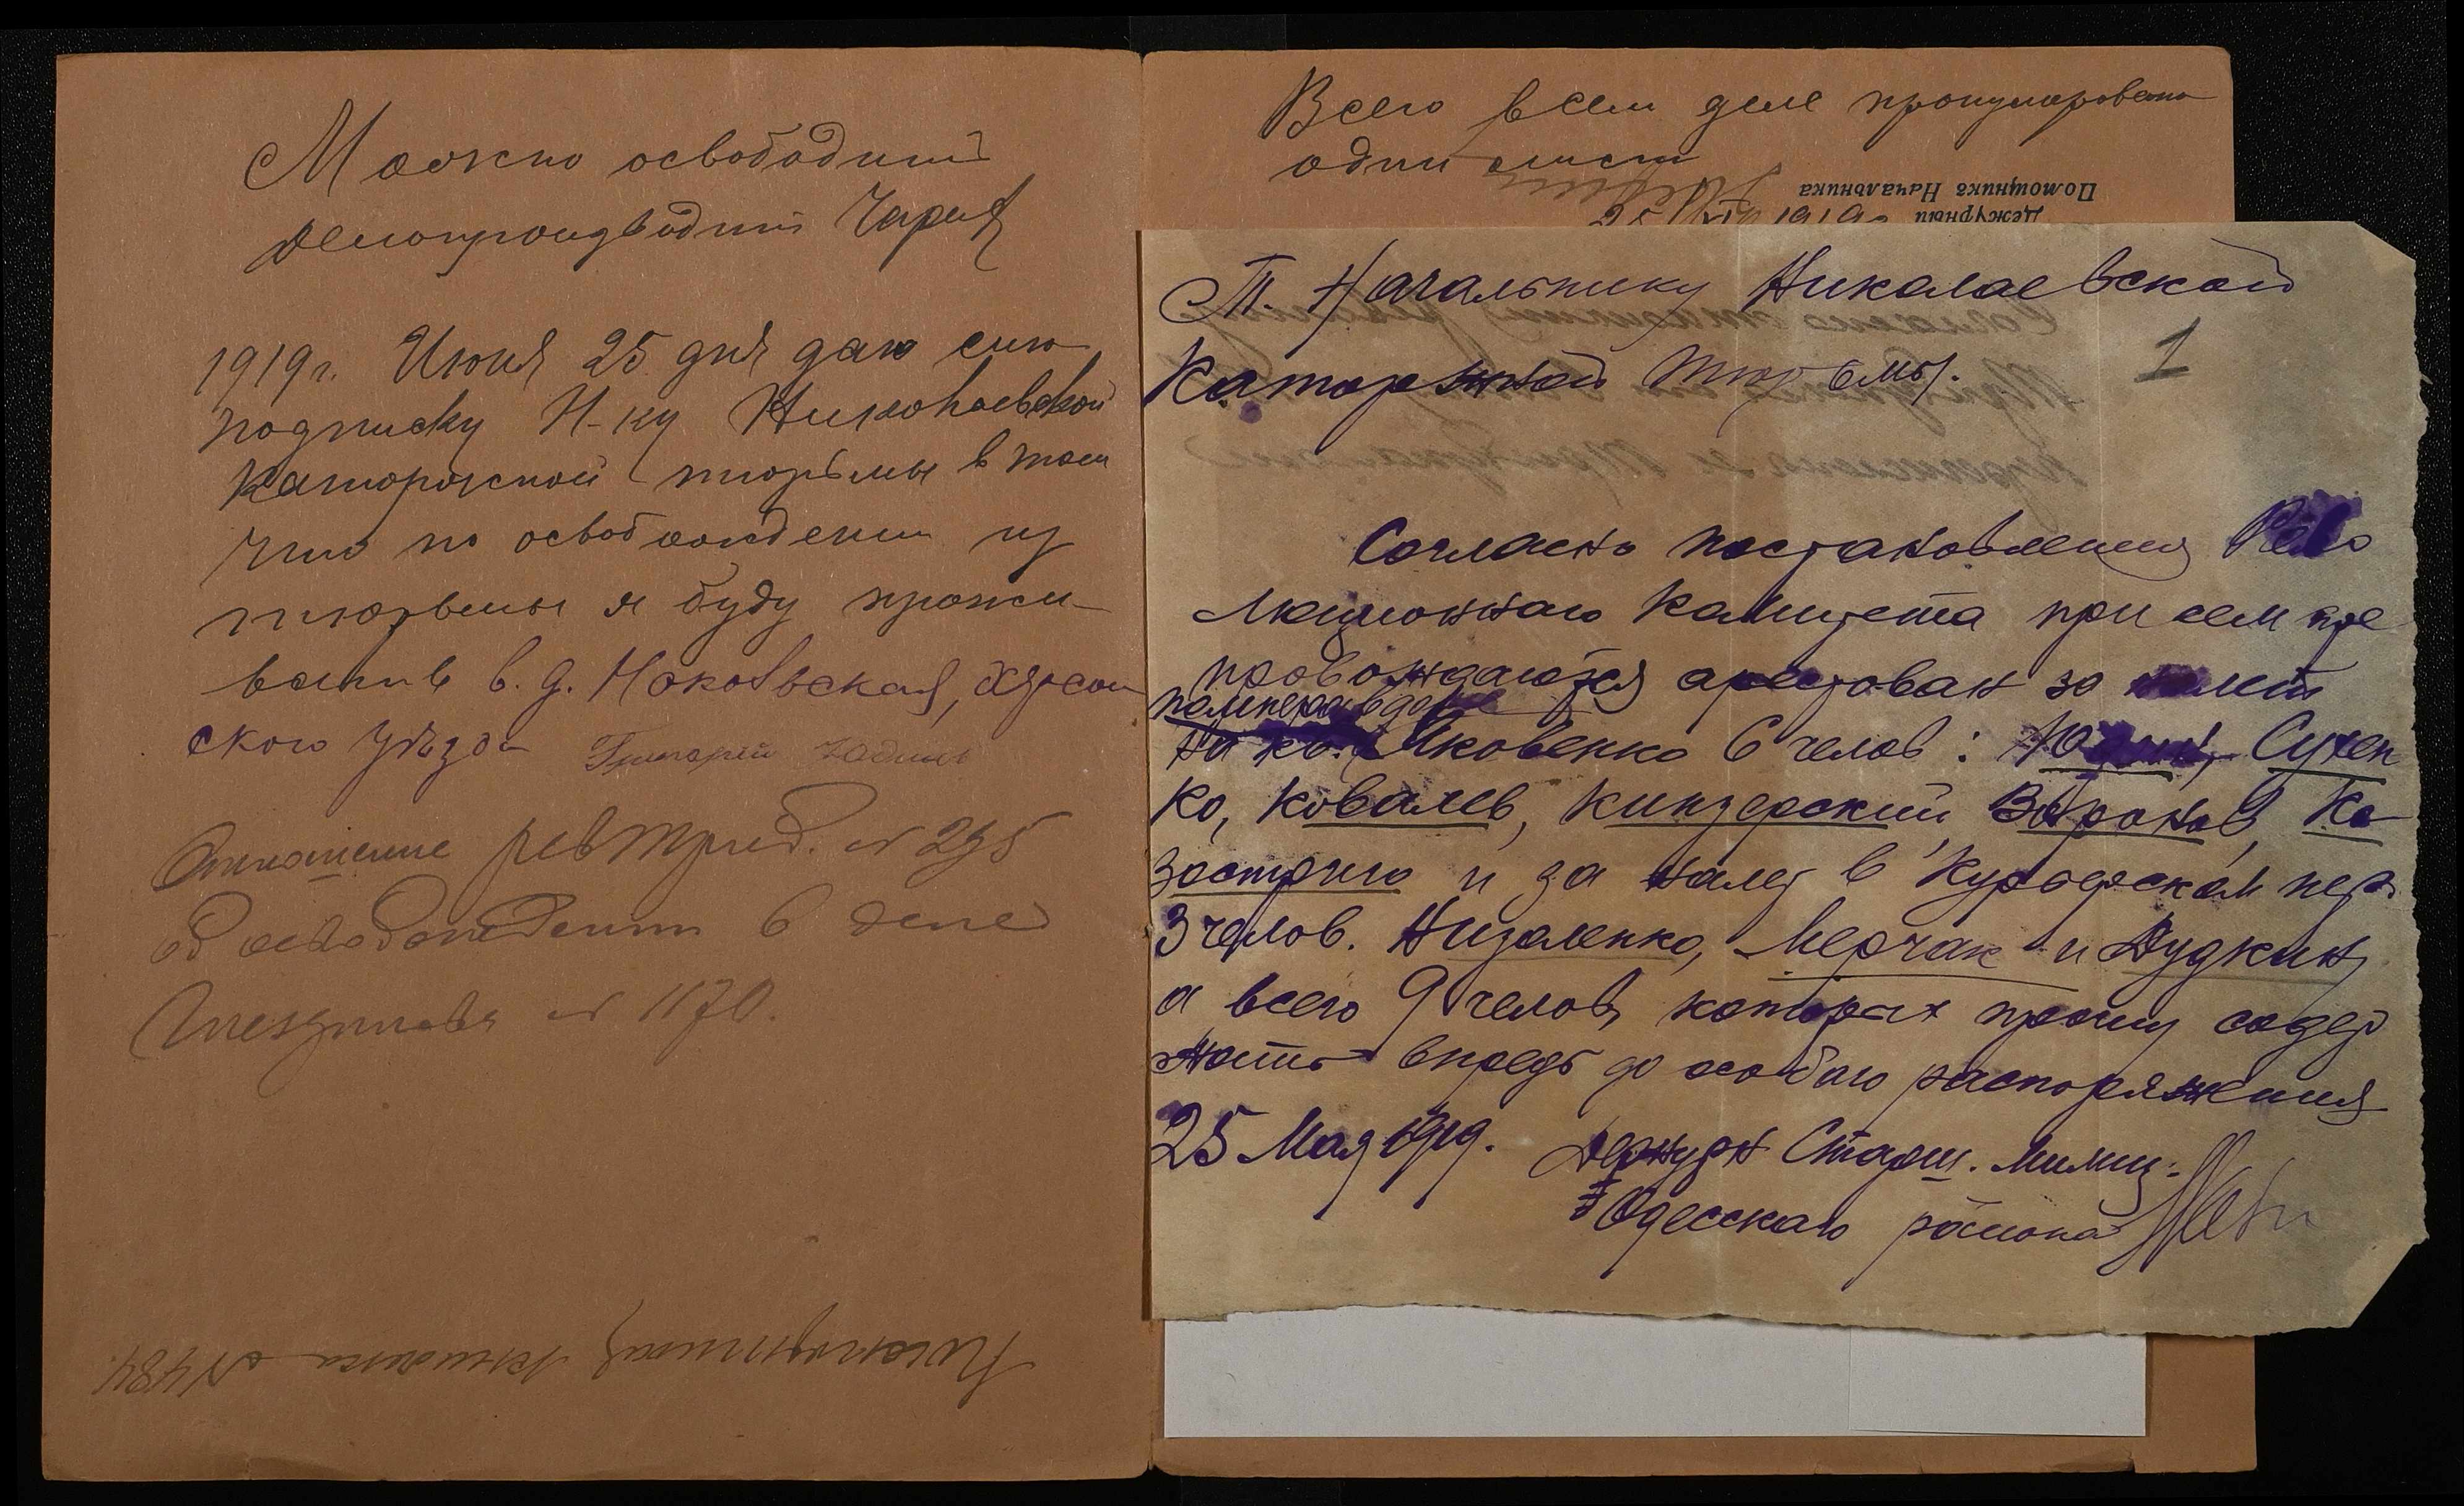 Можно освободить
Делопроизводит
1919 г. Июня 25 дня даю сию
подписку Н-ку Николаевской
каторжской тюрьмы в том
что по освобождении из
тюрьмы я буду прожи-
вать в. д. Хэрсон
ского уѣзда Григорий Юдинъ
Отношение ревтриб. № 295
об освобождении в деле
№ 1170.
книжка № 484.
Всего всем деле пронумеровано
один лист
Помощника Начальника
Дежурный
25/VI 1919
Т. Начальнику Николаевской
Каторжной тюрьмы.
1
Согласно постановления Рево
люционнаго Комитета при сем пре
провождаются арестован за налет
на кв. Яковенко 6 челов: Юдин, Сухен
ко, Ковалев, Кинзерский Воронов, Ко
застриго и за налет в Курьерском пер.
3 челов. Низаленко, Мерчак и Дудкин
а всего 9 челов, которых прошу содер
жать впредь до особаго распоряжения
25 Мая 1919. Дежурн Старш. Милиц.
Одесскаго района